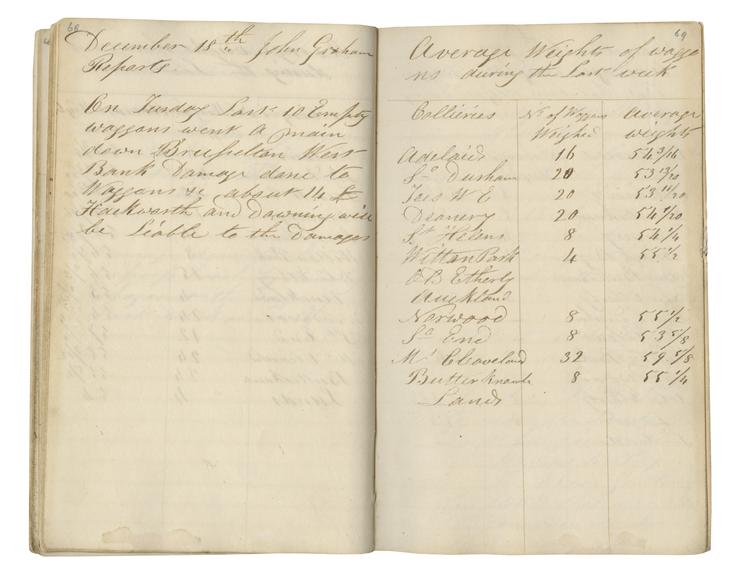 68
December 18th John Graham
Reports
On Tusday Last 10 Empty
waggons went a main
down Brusselton West
Bank Damage done to
Waggons &c about 14 £
Hackworth and Downing will
be Liable to the Damages
69
Average Weights of wagga
ns during the Last week
Collieries No of Waggons Weighed Average weights
Adelaids 16 54 3/16
So Durham 20 53 13/20
Tees W E 20 53 11/20
Deanery 20 54 9/20
St Helens 8 54 1/4
Witton Park 4 55 1/2
B Etherly
Auckland
Norwood 8 55 1/2
So End 8 53 5/8
Mr Cleaveland 32 59 5/8
Butterknowle 8 55 1/4
Lands